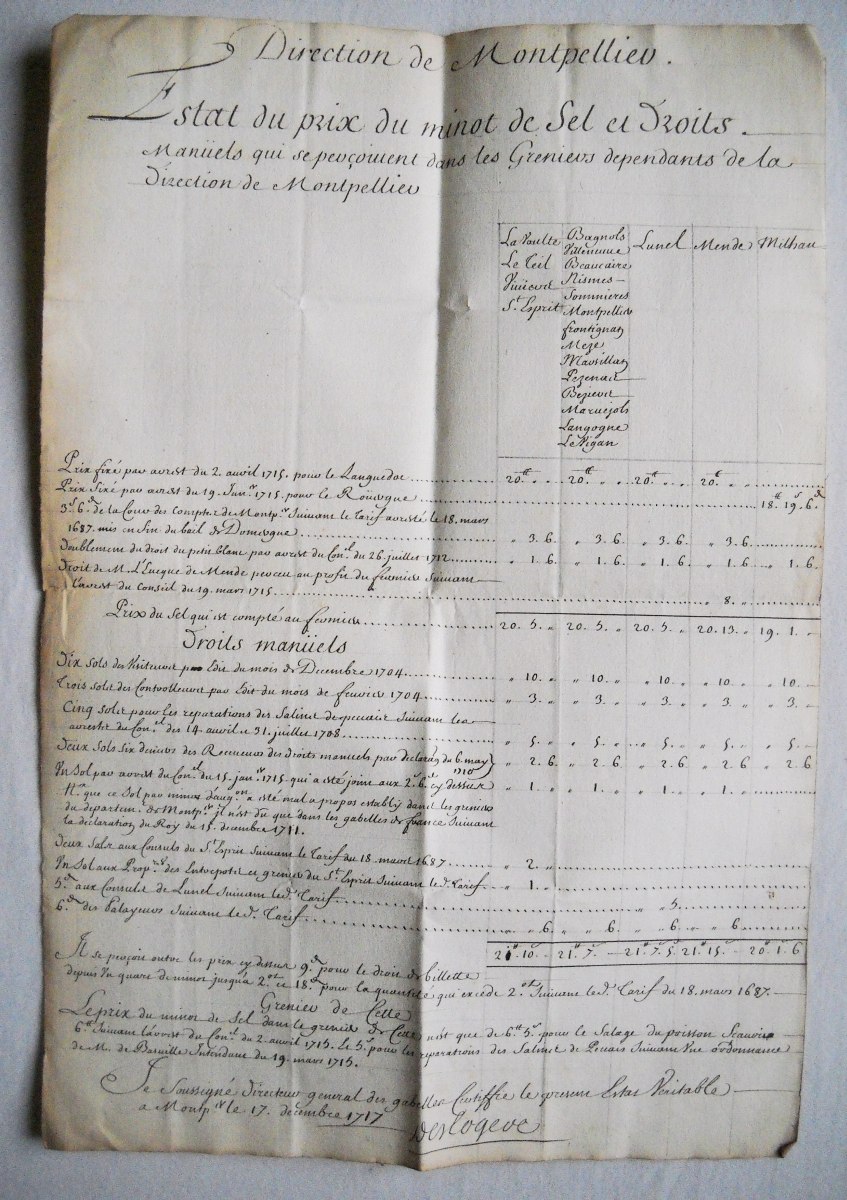 Direction de Montpellier.
Estat du prix du minot de Sel et Droits
Manüels qui se perçoivent dans les Greniers dependants de la
Direction de Montpellier
La Vaulte Bagnols Lunel Mende Milhau
Villeneuve
Le Teil Beaucaire
Viviers Nismes
St. Esprit Sommieres
Montpellier
frontignan
Meze
Marsillan
Pezenas
Beziers
Maruejols
Langogne
Le Vigan
Prix fixé par arrest du 2. avril 1715. pour le Languedoc 20.tt „ „ 20.tt „ „ 20.tt „ „ 20.tt „ „
Prix fixé par arrest du 19. Janr. 1715. pour le Roüergue 18.tt 19.s 6.d
3.s 6.d de la Cour des Comptes de Montpr. Suivant le Tarif arresté le 18. mars
1687. mis en fin du bail de Domergue „ 3. 6. „ 3. 6. „ 3. 6. „ 3. 6.
Doublement du droit du petit blanc par arrest du Conl. du 26. juillet 1712 „ 1. 6. „ 1. 6. „ 1. 6. „ 1. 6. „ 1. 6.
Droit de M. L'Eveque de Mende perceu au profit du fermier Suivant
l'arrest du Conseil du 19. mars 1715 „ 8. „
Prix du Sel qui est compté au fermier 20. 5. „ 20. 5. „ 20. 5. „ 20. 13. „ 19. 1. „
Droits manüels
Dix sols des Visiteurs par Edit du mois de Decembre 1704 „ 10. „ „ 10. „ „ 10. „ „ 10. „ „ 10. „
Trois sols des Controlleurs par Edit du mois de fevrier 1704 „ 3. „ „ 3. „ „ 3. „ „ 3. „ „ 3. „
Cinq sols pour les reparations des Salins de peccais Suivant les
arrests du Conel. des 14. avril et 31. juillet 1708 „ 5. „ „ 5. „ „ 5. „ „ 5. „ „ 5. „
Deux Sols six deniers des Receveurs des droits manuels par declaraon du 6. may 1710 „ 2. 6. „ 2. 6. „ 2. 6. „ 2. 6. „ 2. 6
Un Sol par arrest du Conel. du 15. janr. 1715. qui a esté joint aux 2.s 6.d cy dessus „ 1. „ „ 1. „ „ 1. „ „ 1. „
Na. que ce Sol par minot d'augon. a esté mal a propos establÿ dans les greniers
du departemt. de Montpr. il n'est dû que dans les gabelles de france Suivant
la declaration du Roy du 15. decembre 1711.
Deux Sols aux Consuls du St. Esprit Suivant le Tarif du 18. mars 1687 „ 2. „
Un Sol aux Proprres. des Entrepots et greniers du St. Esprit Suivant led. Tarif „ 1. „
5.d aux Consuls de Lunel Suivant led. Tarif „ „ 5.
6.d des Palayeurs Suivant led. Tarif „ „ 6. „ „ 6. „ „ 6. „ „ 6.
21.tt 10. — 21.tt 7. — 21.tt 7. 5. 21.tt 15. — 20.tt 1. 6
Il se perçoit outre les prix cy dessus 9.d pour le droit de billette
depuis Un quart de minot jusqu'à 2.ot et 18.d pour la quantité qui excede 2.ot Suivant led. Tarif du 18. mars 1687.
Grenier de Cette
Le prix du minot de Sel dans le grenier de Cette n'est que de 6.tt 5.s pour le Salage du poisson Scavoir
6.tt Suivant l'arrest du Conl. du 2. avril 1715. Et 5.s pour les reparations des Salins de Peccais Suivant Une ordonnance
de M. de Basville Intendant du 19. mars 1715.
Je Soussigné Directeur general des gabelles Certiffie le present Estat Veritable
a Montpr. le 17. decembre 1717